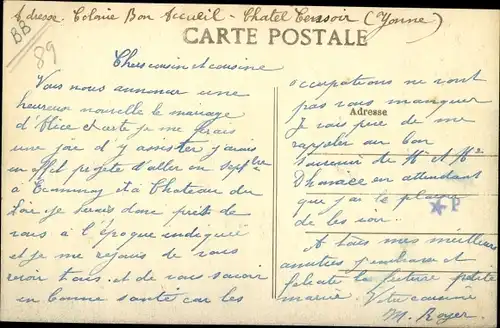 Adresse Colonie Bon Accueil - Chatel Censoir (Yonne)
BB
89
CARTE POSTALE
Chers cousin et cousine
Vous nous annoncer une
heureuse nouvelle le mariage
d'Alice et certe je me ferais
une joie d'y assister j'avais
en effet projeté d'aller en Septbre
à et à Chateau du
Loir. je serais donc près de
vous à l'époque indiquée
et je me rejouis de vous
revoir tous. et de vous savoir
en bonne santé car les
occupations ne vont
pas vous manquer
Adresse
Je vous prie de me
rappeler au bon
souvenir de Mr et Mme
en attendant
que j'ai le plaisir
de les voir..
P
A tous mes meilleures
amitiés j'embrasse et
félicite la future petite
mariée. Votre cousine
M. Royer